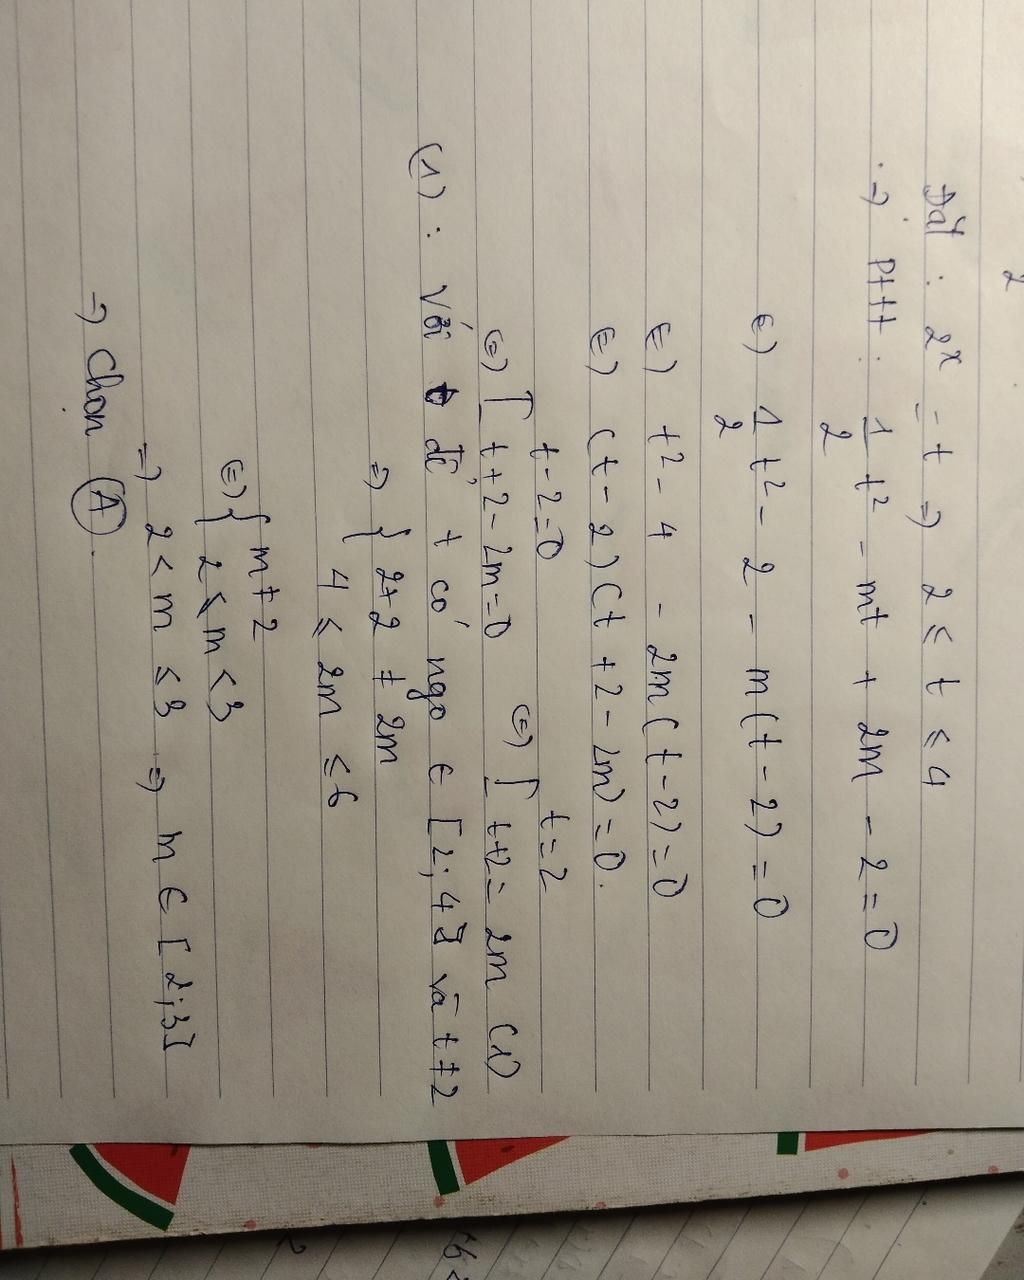 2
Đặt : 2^x = t => 2 ≤ t ≤ 4
=> Pttt : 1/2 t² - mt + 2m - 2 = 0
(=) 1/2 t² - 2 - m(t - 2) = 0
(=) t² - 4 - 2m(t - 2) = 0
(=) (t - 2)(t + 2 - 2m) = 0.
(=) [ t - 2 = 0 (=) [ t = 2
t + 2 - 2m = 0 t + 2 = 2m (1)
(1) : Với để t có ngo ∈ [2; 4] và t ≠ 2
=> { 2+2 ≠ 2m
4 ≤ 2m ≤ 6
(=) { m ≠ 2
2 ≤ m < 3
=> 2 < m ≤ 3 => m ∈ [2;3]
=> Chọn (A).